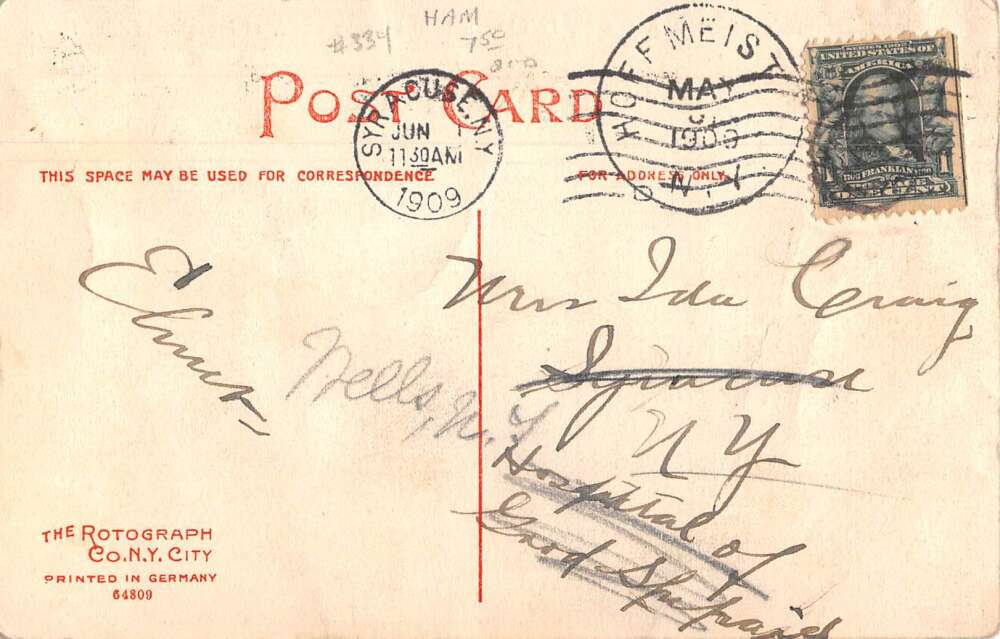 HAM
#334
750
POST CARD
SYRACUSE, N.Y.
JUN 1
1130AM
1909
HOFFMEIST
MAY
31
1909
N.Y.
SERIES 1902
UNITED STATES OF
AMERICA
1
FRANKLIN
ONE CENT
THIS SPACE MAY BE USED FOR CORRESPONDENCE
FOR ADDRESS ONLY
Mrs Ida Craig
Syracuse
N Y
Hospital of
Good Sheperd
Wells, N.Y
THE ROTOGRAPH
CO. N.Y. CITY
PRINTED IN GERMANY
64809